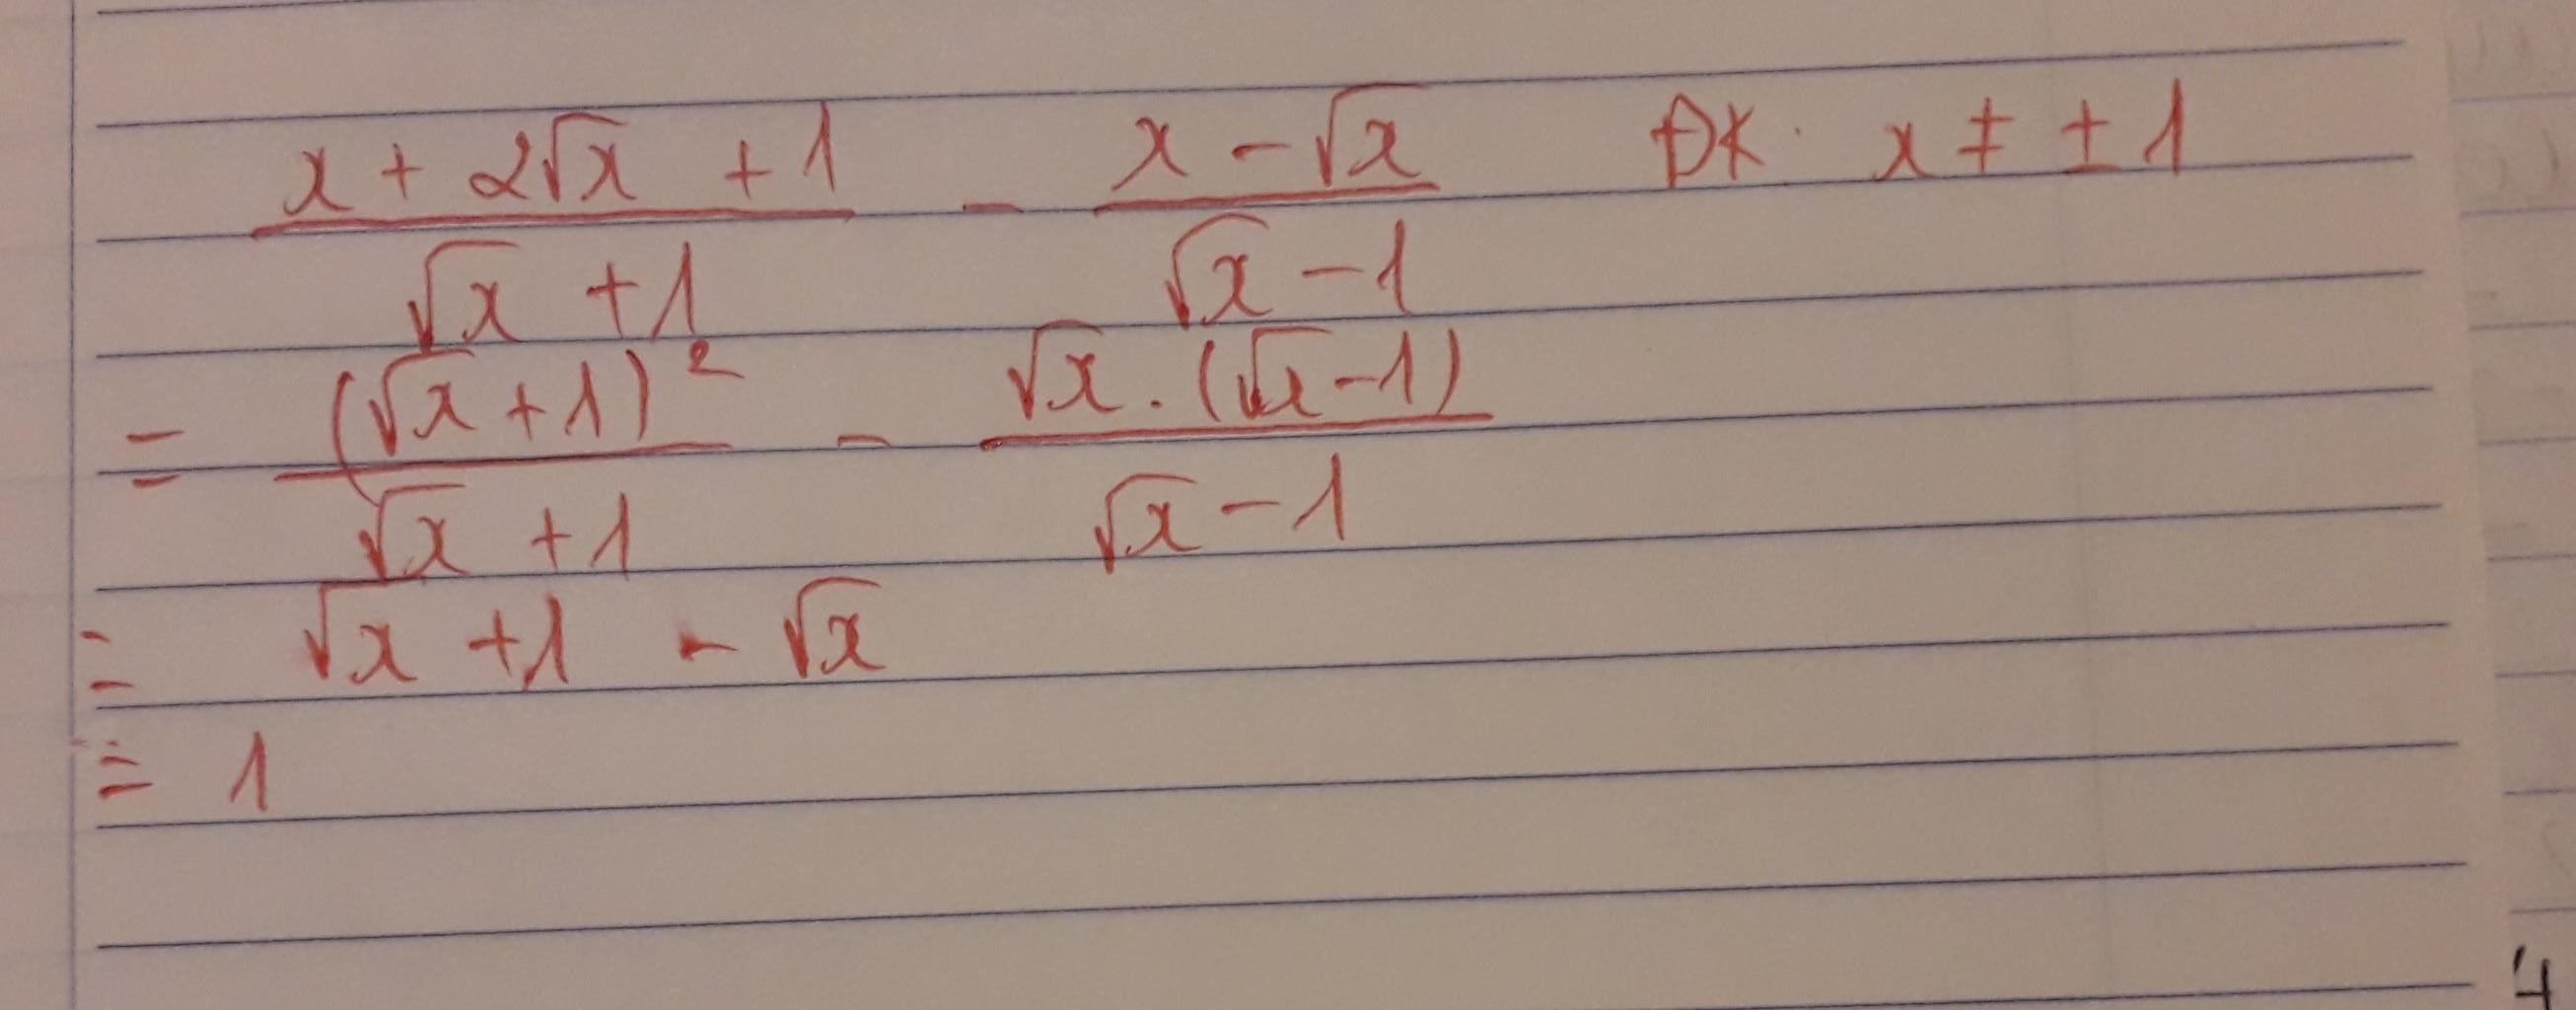 x + 2√x + 1 / √x + 1 - x - √x / √x - 1 ĐK: x ≠ ± 1
= (√x + 1)² / √x + 1 - √x . (√x - 1) / √x - 1
= √x + 1 - √x
= 1